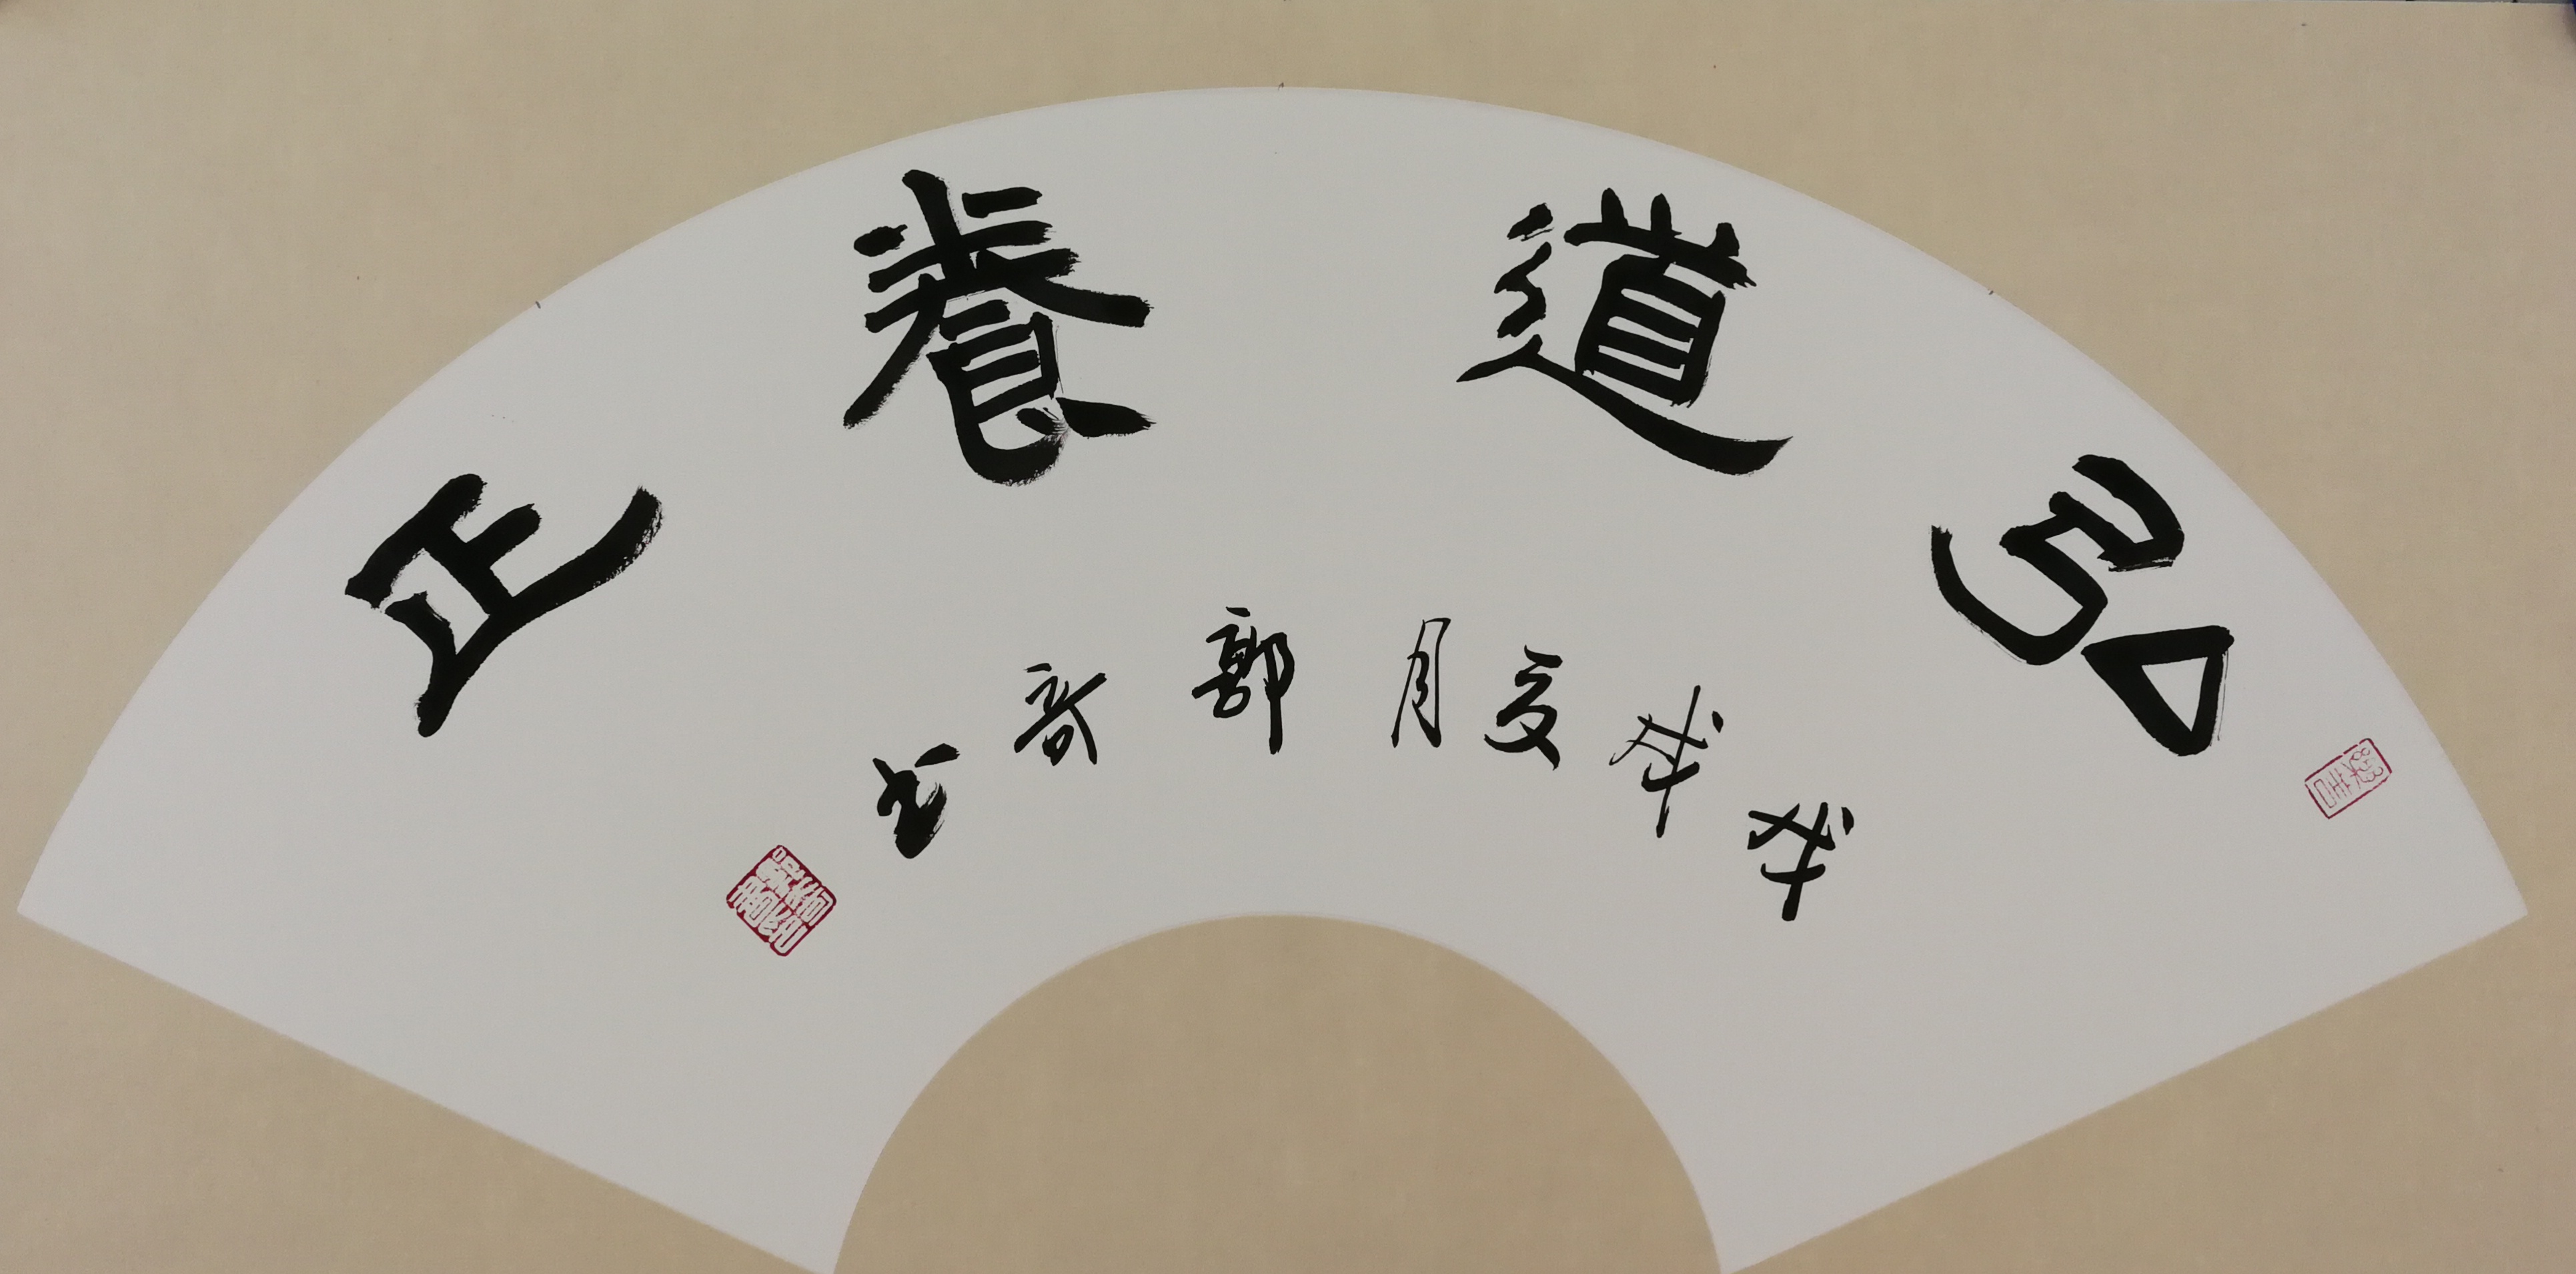 弘道養正
戊戌夏月 郭 书